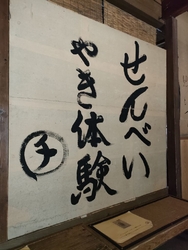 せんべい
やき体験
チ